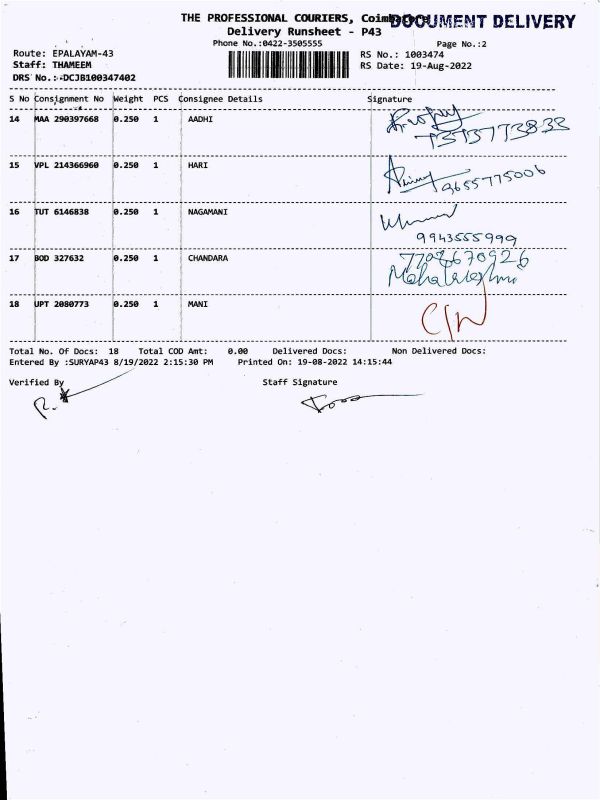 THE PROFESSIONAL COURIERS, Coimbatore
DOCUMENT DELIVERY
Delivery Runsheet - P43
Phone No.:0422-3505555
Page No.:2
Route: EPALAYAM-43
RS No.: 1003474
Staff: THAMEEM
RS Date: 19-Aug-2022
DRS No.:-DCJB100347402
S No Consignment No Weight PCS Consignee Details Signature
14 MAA 290397668 0.250 1 AADHI
7373773833
15 VPL 214366960 0.250 1 HARI
9655775006
16 TUT 6146838 0.250 1 NAGAMANI
9943555999
17 BOD 327632 0.250 1 CHANDARA
7708670926
Mahalakshmi
18 UPT 2080773 0.250 1 MANI
Total No. Of Docs: 18 Total COD Amt: 0.00 Delivered Docs: Non Delivered Docs:
Entered By :SURYAP43 8/19/2022 2:15:30 PM Printed On: 19-08-2022 14:15:44
Verified By Staff Signature